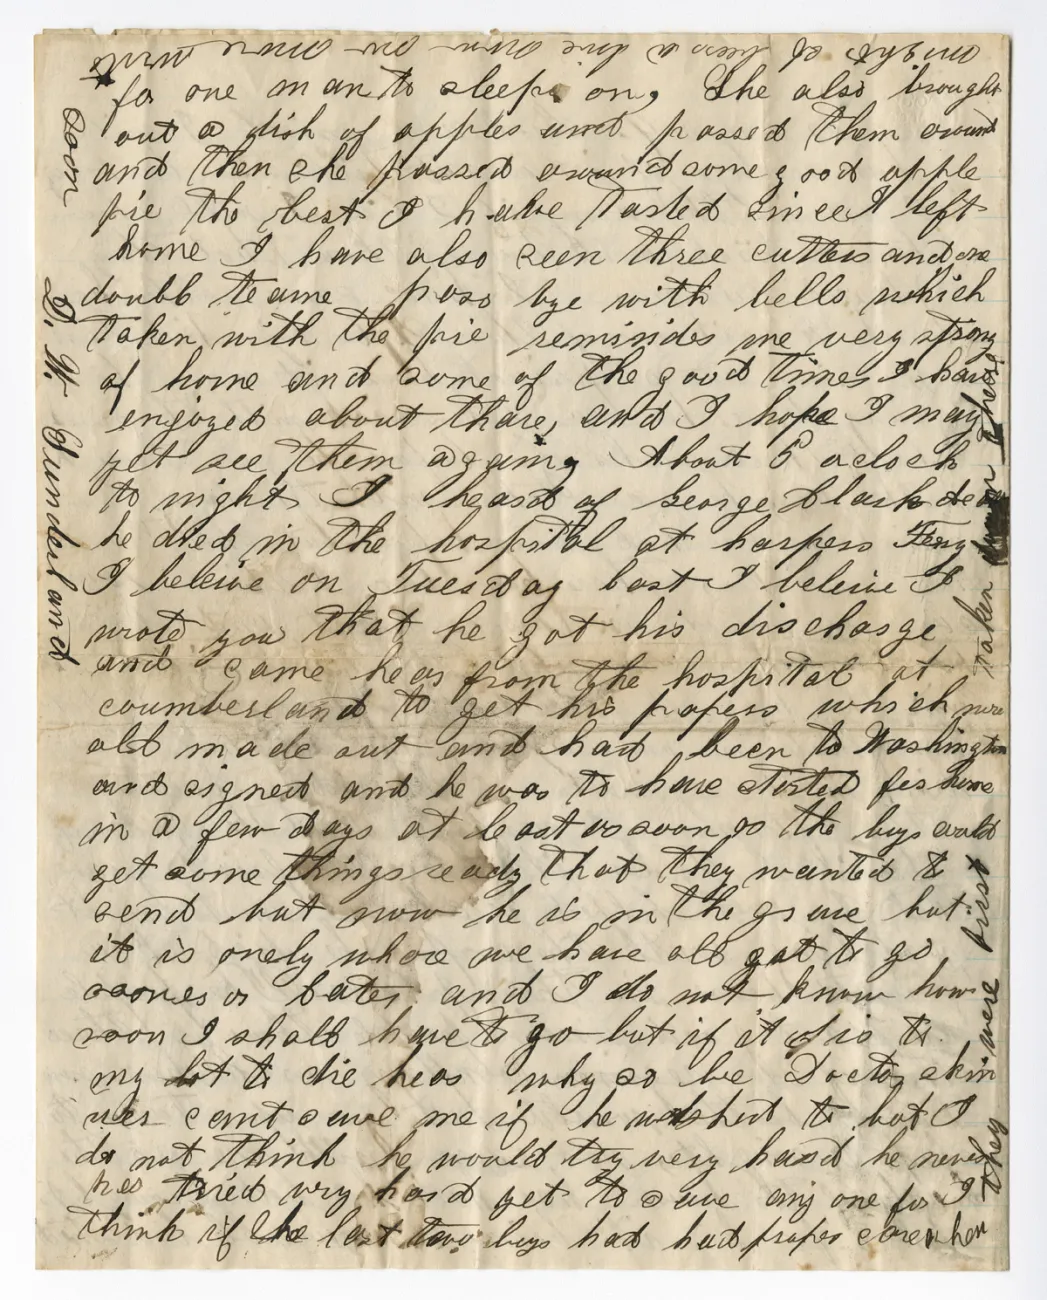 for one man to sleep on, She also brought
out a dish of apples and passed them around
and then she passed around some good apple
pie the best I have tasted since I left
home I have also seen three cutters and one
doubb teame pass bye with bells which
taken with the pie reminds me very strong
of home and some of the good times I have
enjoyed about thare, and I hope I may
yet see them again, About 5 oclock
to night I heard of George Blark
he died in the hospital at harpers Fery
I beleive on Tuesday last I beleive I
wrote you that he got his discharge
and came hear from the hospital at
coumberland to get his papers which were
all made out and had been to Washington
and signed and he was to have started for home
in a few days at least as soon as the boys could
get some things ready that they wanted to
send but now he is in the grave but
it is onely whare we have all got to go
sooner or later. and I do not know how
soon I shall have to go but if it is to
my lot to die hear why so be Doctor skin
ner cant save me if he wishut to but I
do not think he would try very hard he never
has tried very hard yet to save any one for I
think if the last two boys had had proper care when
they were first taken down there
soon
D. W. Sunderland